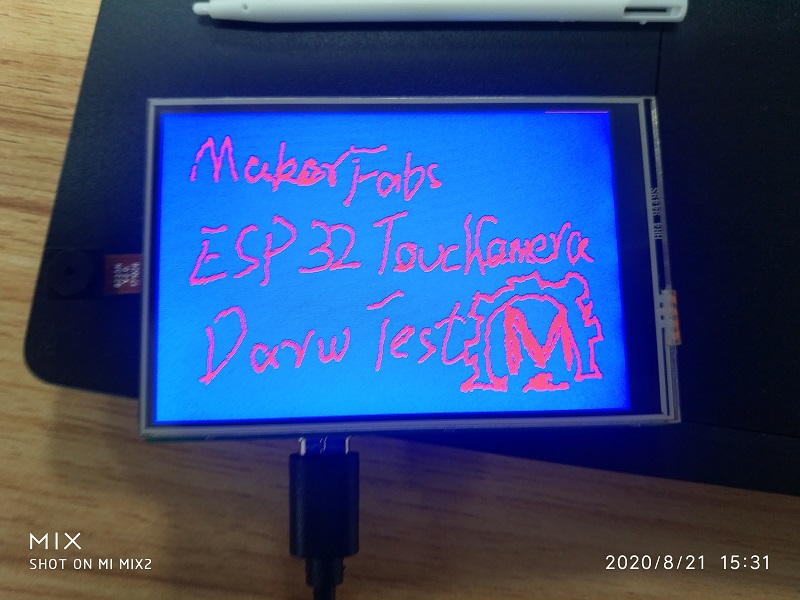 MakerFabs
ESP32 TouchCamera
Darw Test
M
MIX
SHOT ON MI MIX2
2020/8/21 15:31